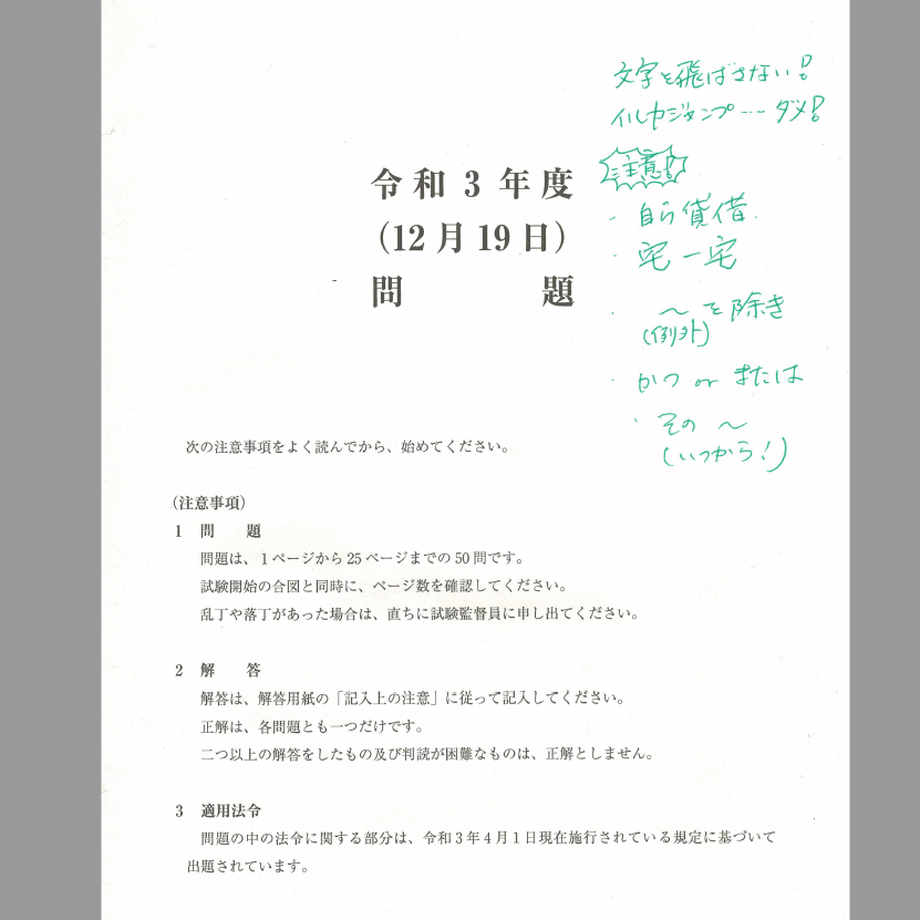 文字を飛ばさない!!
イルカジャンプ…ダメ!!
注意!!
・自ら貸借
・宅一宅
・〜を除き
(例外)
・かつ or または
・その〜
(いつから!)
令和3年度
(12月19日)
問 題
次の注意事項をよく読んでから、始めてください。
(注意事項)
1 問 題
問題は、1ページから25ページまでの50問です。
試験開始の合図と同時に、ページ数を確認してください。
乱丁や落丁があった場合は、直ちに試験監督員に申し出てください。
2 解 答
解答は、解答用紙の「記入上の注意」に従って記入してください。
正解は、各問題とも一つだけです。
二つ以上の解答をしたもの及び判読が困難なものは、正解としません。
3 適用法令
問題の中の法令に関する部分は、令和3年4月1日現在施行されている規定に基づいて
出題されています。